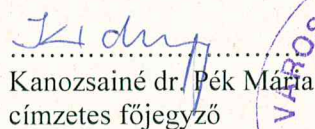 Kanozsainé dr. Pék Mária
címzetes főjegyző
VÁROS